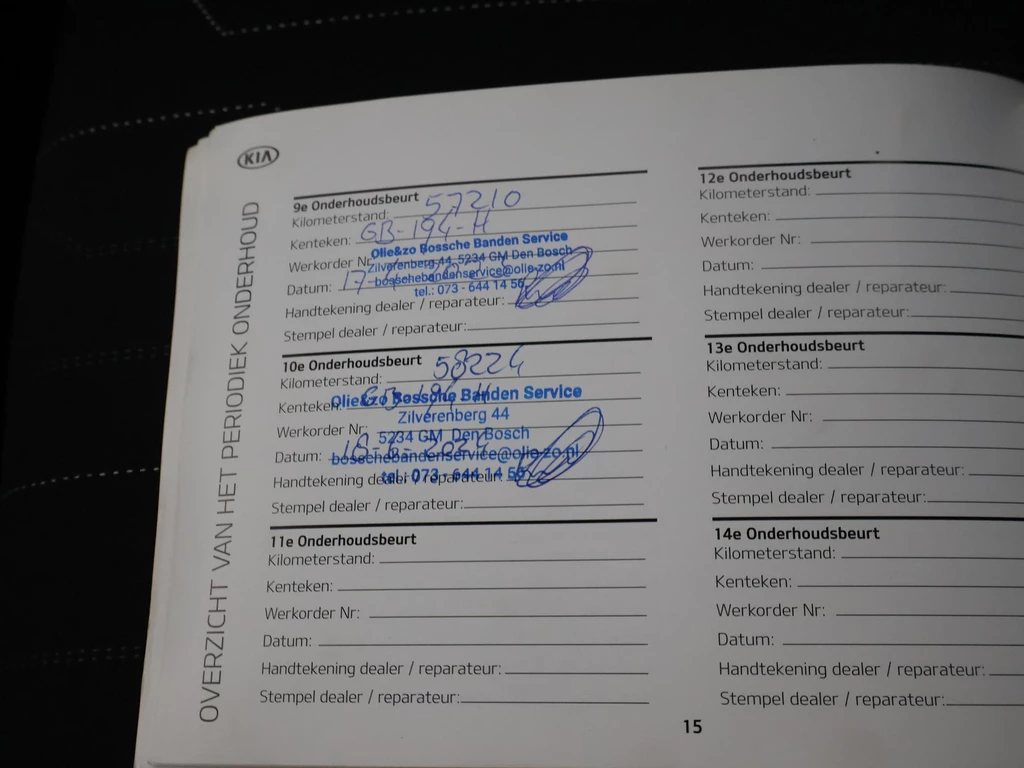 KIA
OVERZICHT VAN HET PERIODIEK ONDERHOUD
9e Onderhoudsbeurt
Kilometerstand: 57210
Kenteken: GB-194-H
Werkorder Nr
Olie&zo Bossche Banden Service
Zilverenberg 44, 5234 GM Den Bosch
Datum: 17-
bosschebandenservice@olie-zo.nl
tel.: 073 - 644 14 56
Handtekening dealer / reparateur:
Stempel dealer / reparateur:
10e Onderhoudsbeurt
Kilometerstand: 58224
Kenteken: GB-194-H
Olie&zo Bossche Banden Service
Zilverenberg 44
Werkorder Nr:
5234 GM Den Bosch
Datum:
bosschebandenservice@olie-zo.nl
Handtekening dealer / reparateur:
tel.: 073 - 644 14 56
Stempel dealer / reparateur:
11e Onderhoudsbeurt
Kilometerstand:
Kenteken:
Werkorder Nr:
Datum:
Handtekening dealer / reparateur:
Stempel dealer / reparateur:
12e Onderhoudsbeurt
Kilometerstand:
Kenteken:
Werkorder Nr:
Datum:
Handtekening dealer / reparateur:
Stempel dealer / reparateur:
13e Onderhoudsbeurt
Kilometerstand:
Kenteken:
Werkorder Nr:
Datum:
Handtekening dealer / reparateur:
Stempel dealer / reparateur:
14e Onderhoudsbeurt
Kilometerstand:
Kenteken:
Werkorder Nr:
Datum:
Handtekening dealer / reparateur:
Stempel dealer / reparateur:
15